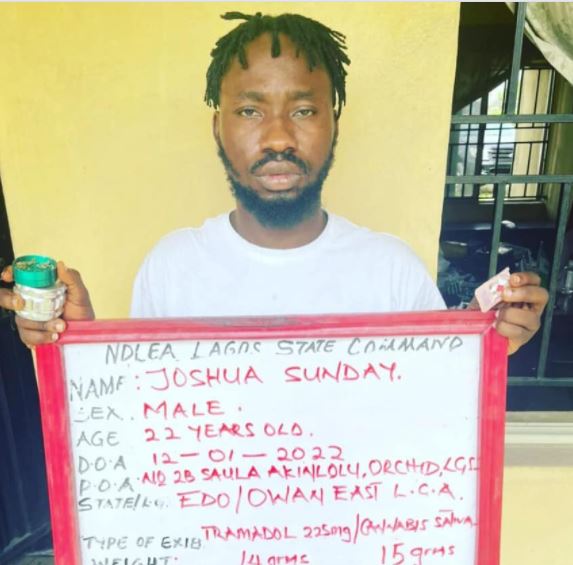 NDLEA LAGOS STATE COMMAND
NAME: JOSHUA SUNDAY.
SEX. MALE.
AGE 22 YEARS OLD.
D.O.A 12-01-2022
P.O.A. NO 2B SAULA AKINLOLU, ORCHID, LGS
STATE/LG. EDO/OWAN EAST L.G.A.
TYPE OF EXIB. TRAMADOL 225mg/CANNABIS SATIVA
WEIGHT: 14grms 15grms